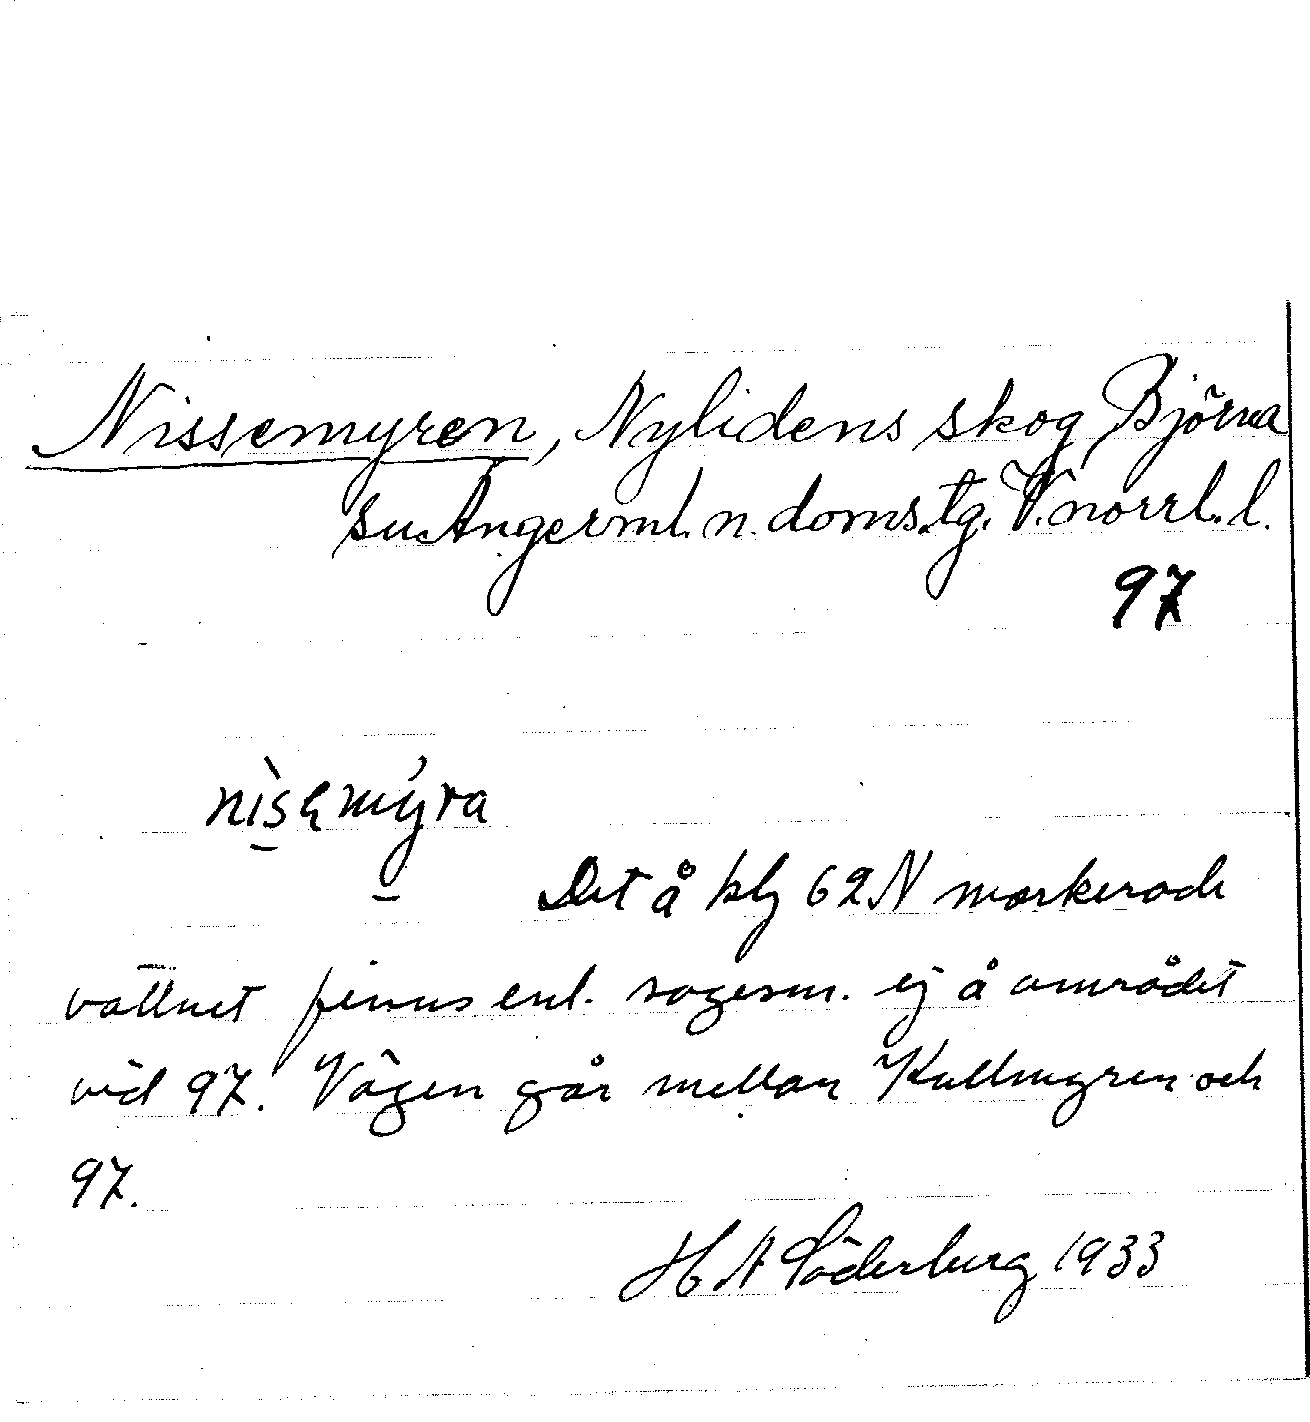 Nissemyren, Nylidens skog, Björna
sn. Ångerml. n. doms.tg. V.norrl. l.
97
Det å blj 62N markerade
vattnet finns enl. sagesm. ej å området
vid 97. Vägen går mellan Kullmyren och
97.
H A Söderberg 1933